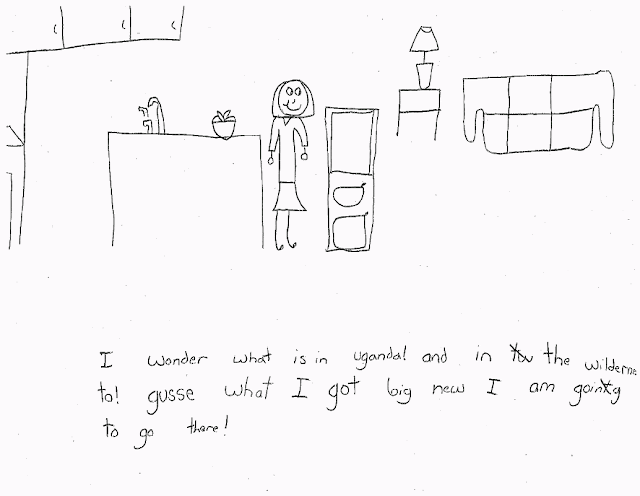 I wonder what is in uganda! and in the wilderne
to! gusse what I got big new I am going
to go there!